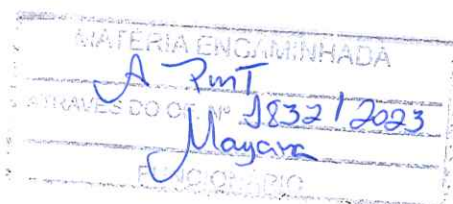 MATÉRIA ENCAMINHADA
A PMT
ATRAVÉS DO OF. Nº 1832/2023
Mayara
FUNCIONÁRIO